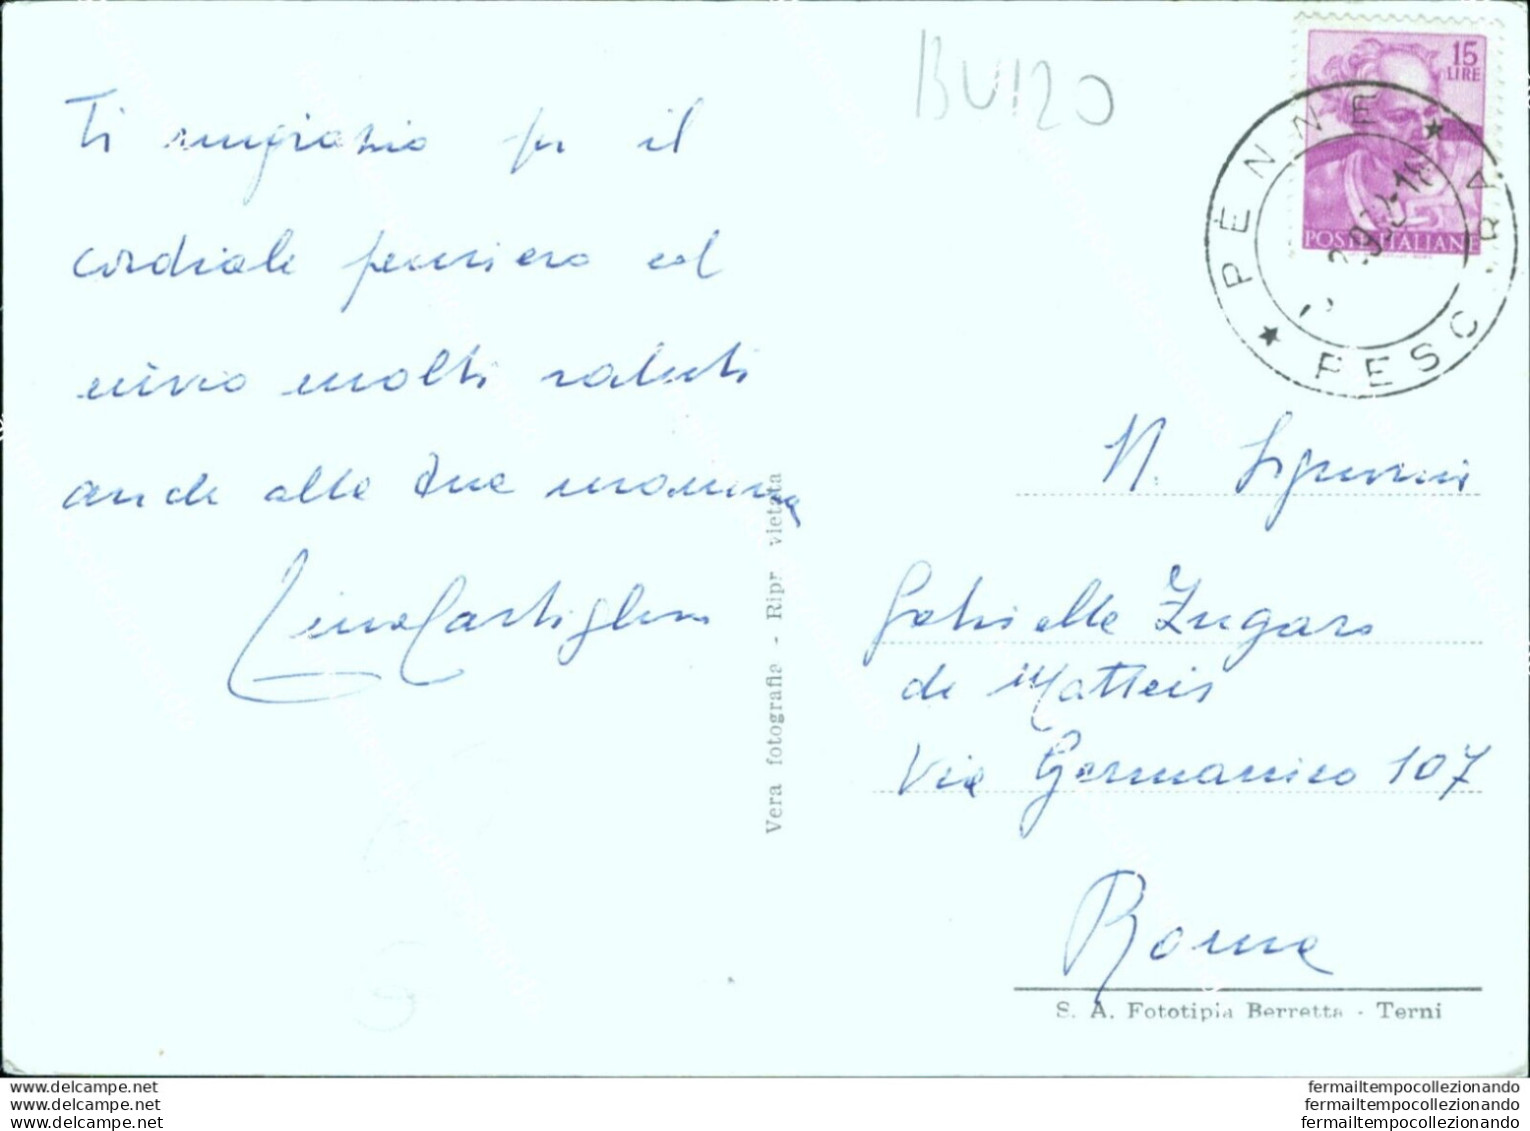 BU120
15
LIRE
POSTE ITALIANE
PENNE
PESCARA
Ti ringrazio per il
cordiale pensiero ed
invio molti saluti
anche alla tua mamma
N. Signorina
Gabriella Zugaro
de Matteis
Via Germanico 107
Roma
Vera fotografia - Ripr vietata
S. A. Fototipia Berretta - Terni
www.delcampe.net
www.delcampe.net
www.delcampe.net
fermailtempocollezionando
fermailtempocollezionando
fermailtempocollezionando